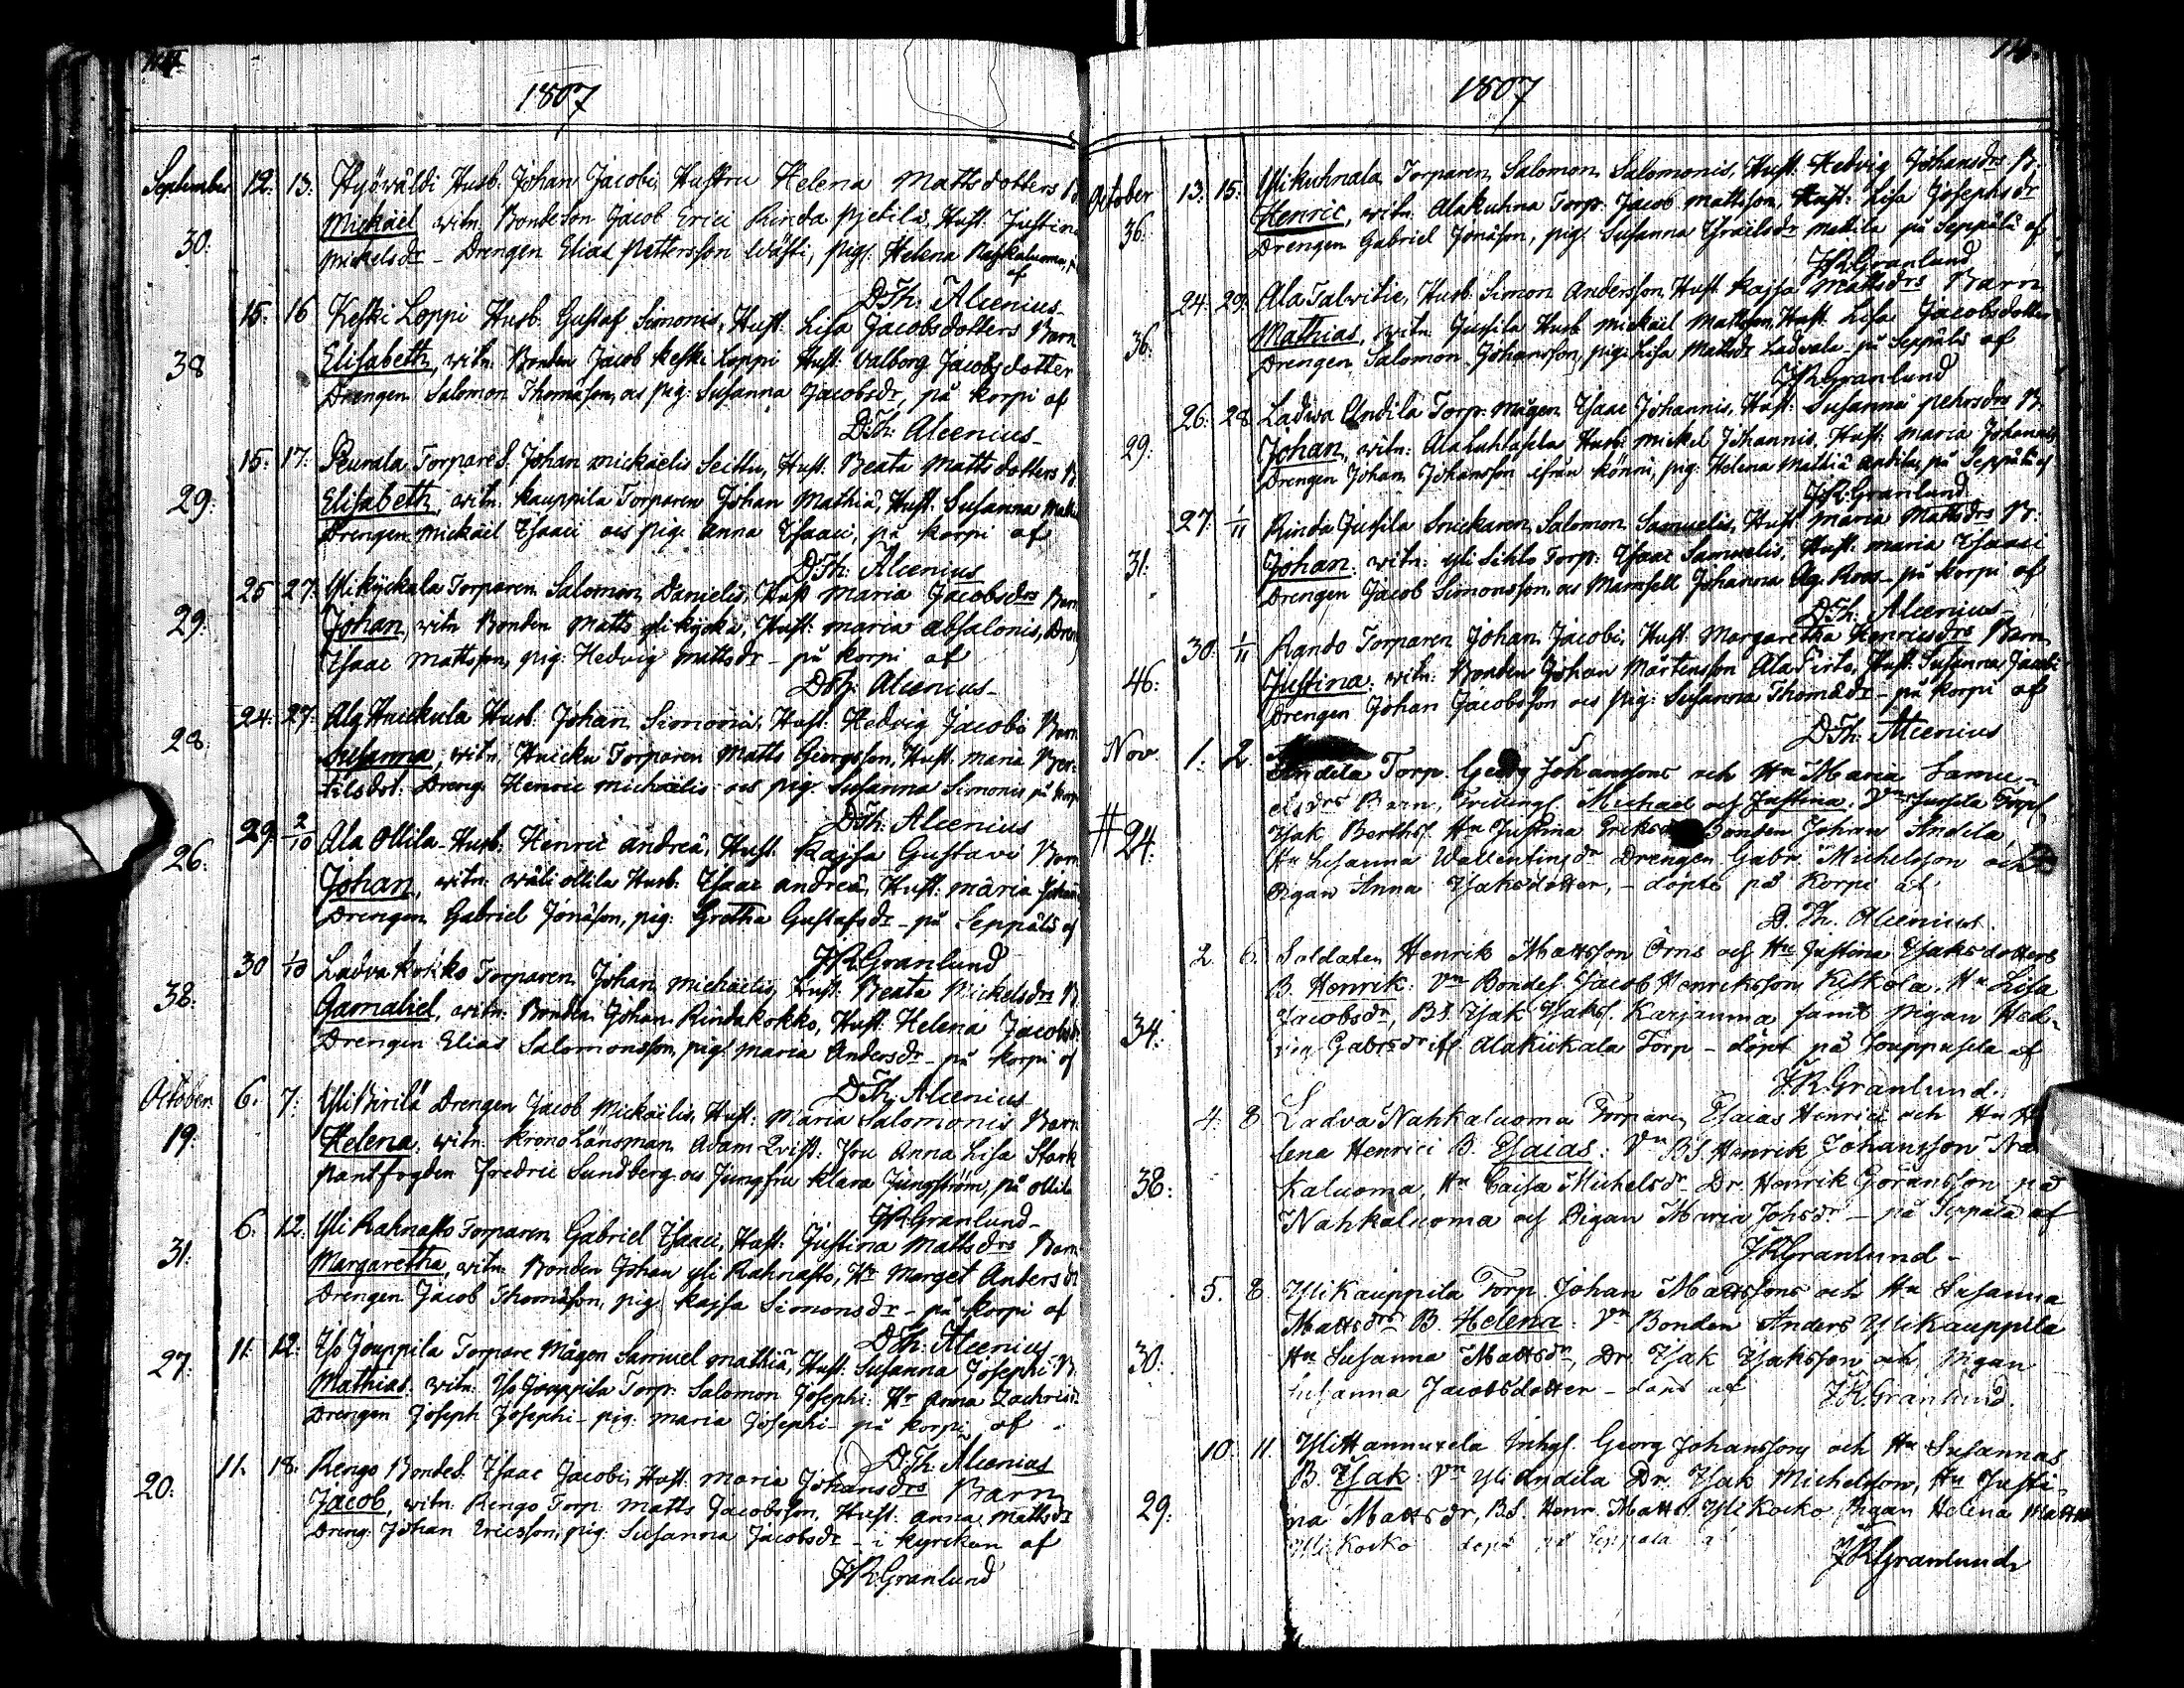 1807
September 12. 13. Hyöwäldi Husb. Johan Jacobi, Hustru Helena Mattsdotters
Mickael witn. Bondeson Jacob Erici Rinda Pjetilä, Hust. Justina
30. Mickelsdr - Drengen Elias Pettersson Wästi, pigs. Helena
af
D:Th: Alcenius
15. 16 Keski Loppi Husb. Gustaf Simonis, Hust. Lisa Jacobsdotters Barn
38 Elisabeth, witn. Bonden Jacob Keski Loppi Hust. Valborg Jacobsdotter
Drengen Salomon Thomasson, ac pig: Susanna Jacobsdr, på Korpi af
D:Th: Alcenius
15. 17. Peurala Torpare S. Johan Mickaelis Seittu, Hust. Beata Mattsdotters B.
29. Elisabeth, witn. Kauppila Torparen Johan Mathiæ, Hust. Susanna
Drengen Mickäel Isaaci ac pig. Anna Isaaci, på Korpi af
D:Th: Alcenius
25 27. Ylikyckala Torparen Salomon Danielis, Hust Maria Jacobsdrs Barn
29. Johan, witn Bonden Matts yli kycka, Hust: Maria Absalonis, Dren
Isaac Mattsson, pig: Hedvig Mattsdr - på Korpi af
D:Th: Alcenius
24. 27. Ala Huickula Husb. Johan Simonis, Hust. Hedvig Jacobi Barn
28. Susanna, witn. Huicku Torparen Matts Georgsson, Hust. Maria Ber-
tilsdot. Dreng. Henric Michaelis ac pig. Susanna Simonis på Korpi
D:Th: Alcenius
29. 2/10 Ala Ollila Husb. Henric Andreæ, Hust. Kajsa Gustavi Barn
26. Johan, witn. wäli ollila Husb. Isaac Andreæ, Hust. Maria
Drengen Gabriel Jonasson, pig: Gretha Gustafsdr - på Seppälä af
J:R:Granlund
30 1/10 Ladva Kokko Torparen Johan Michaelis, Hust. Beata Mickelsdrs B.
38. Gamaliel, witn. Bonden Johan Rinda kokko, Hust: Helena Jacobsdr
Drengen Elias Salomonsson, pigs. Maria Andersdr - på Korpi af
D:Th: Alcenius
October 6. 7. Yli Pirilä Drengen Jacob Mickaelis, Hust. Maria Salomonis Barn
19. Helena, witn. Krono Länsman Adam Qvist. Fru Anna Lisa Stark
Pantfogden Fredric Sundberg ac Jungfru Klara Ljungström, på Ollila
J:R:Granlund
6. 12. Yli Rahnasto Torparen Gabriel Isaaci, Hust. Justina Mattsdrs Barn
31. Margaretha, witn. Bonden Johan yli Rahnasto, Hr Marget Andersdr
Drengen Jacob Thomasson, pig. Kajsa Simonsdr - på Korpi af
D:Th: Alcenius
11. 12. Iso Jouppila Torpare Mågen Samuel Mathiæ, Hust. Susanna Josephi B.
27. Mathias. witn. Iso Jouppila Torp. Salomon Josephi: Hr Anna Zachrisdr
Drengen Joseph Josephi - pig. Maria Josephi - på Korpi af
D:Th: Alcenius
11. 18. Rengo Bondes. Isaac Jacobi, Hust. Maria Johansdrs Barn
20. Jacob, witn. Rengo Torp. Matts Jacobsson, Hust. Anna Mattsdr
Dreng. Johan Ericsson, pig. Susanna Jacobsdr - i kyrckan af
J:R:Granlund
1807
October 13. 15. Ylikuhnala Torparen Salomon Salomonis, Hust. Hedvig Johansdrs B.
36. Henric, witn. Alakuhna Torp. Jacob Mattsson, Hust. Lisa Josephsdr
Drengen Gabriel Jonasson, pig. Susanna Israelsdr Mattila på Seppälä af
J:R:Granlund
24. 29. Ala Talwitie, Husb. Simon Andersson, Hust Kajsa Mattsdrs Barn
36. Mathias, witn. Jussila Husb Mickäel Mattsson, Hust. Lisa Jacobsdotter
Drengen Salomon Johansson, pig. Lisa Mattsdr Ladvala - på Seppälä af
J:R:Granlund
26. 28. Ladwa Andila Torp. Mågen Isaac Johannis, Hust. Susanna Pehrsdrs B.
29. Johan, witn: Ala Luhtasela Husb. Mickel Johannis. Hust. Maria
Drengen Johan Johansson ifrån Könni, pig: Helena Mathiæ Andila, på Seppälä af
J:R:Granlund
27. 1/11 Rinda Jussila Snickaren Salomon Samuelis, Hust. Maria Mattsdrs B:
31. Johan: witn: yli Sihto Torp: Isaac Samuelis, Hust. Maria Isaaci
Drengen Jacob Simonsson, ac Mamsell Johanna Roos - på Korpi af
D:Th: Alcenius
30. 1/11 Rando Torparen Johan Jacobi, Hust. Margaretha Henricsdrs Barn
46. Justina. witn. Bonden Johan Mårtensson Ala Pirto, Hust. Susanna Jacobi
Drengen Johan Jacobsson ac pig: Susanna Thomædr - på Korpi af
D:Th: Alcenius
Nov. 1. 2. Andila Torp. Georg Johanssons och Hu Maria Samue-
elsdrs Barn, Trillings. Michael och Justina: Vn Jussila Torps
# 24. Isak Berths. Hu Justina Eriksd Bonden Johan Andila
Hu Susanna Wallentinsdr Drengen Gabr. Michelsson och
Pigan Anna Isaksdotter, - döpte på Korpi af
D. Th. Alcenius.
2. 6. Soldaten Henrik Mattsson Örns och Hu Justina Isaksdotters
B. Henrik: Vn Bondes. Jacob Henriksson Kiskola, Hu Lisa
34. Jacobsdr, BS. Isak Isaks. Karjanma samt Pigan Hed-
vig Gabrsdr ifr. Alakiikala Torp - döpt på Jouppusela af
J.R.Granlund.
4. 8. Ladva Nahkaluoma Torparen Esaias Henrici och Hu He
lena Henrici B. Esaias: Vn BS Henrik Johansson
38. kaluoma, Hu Caisa Michelsdr Dr. Henrik Göransson på
Nahkaluoma och Pigan Maria Johsdr - på Seppälä af
J.R.Granlund -
5. 8. Ylikauppila Torp. Johan Matssons och Hu Susanna
Mattsdrs B. Helena: Vn Bonden Anders Ylikauppila
30. Hu Susanna Mattsdr, Dr. Isak Isaksson och Pigan
Susanna Jacobsdotter - döpt af J.R.Granlund.
10. 11. Ylihannuxela Inhys. Georg Johanssons och Hu Susannas
B. Isak: Vn Yli Andila Dr. Isak Michelsson, Hu Justi-
29. na Matsdr, BS. Henr. Matts. Yli Kocko Pigan Helena Matts
Yli Kocko döpt på Seppälä af
J.R.Granlund